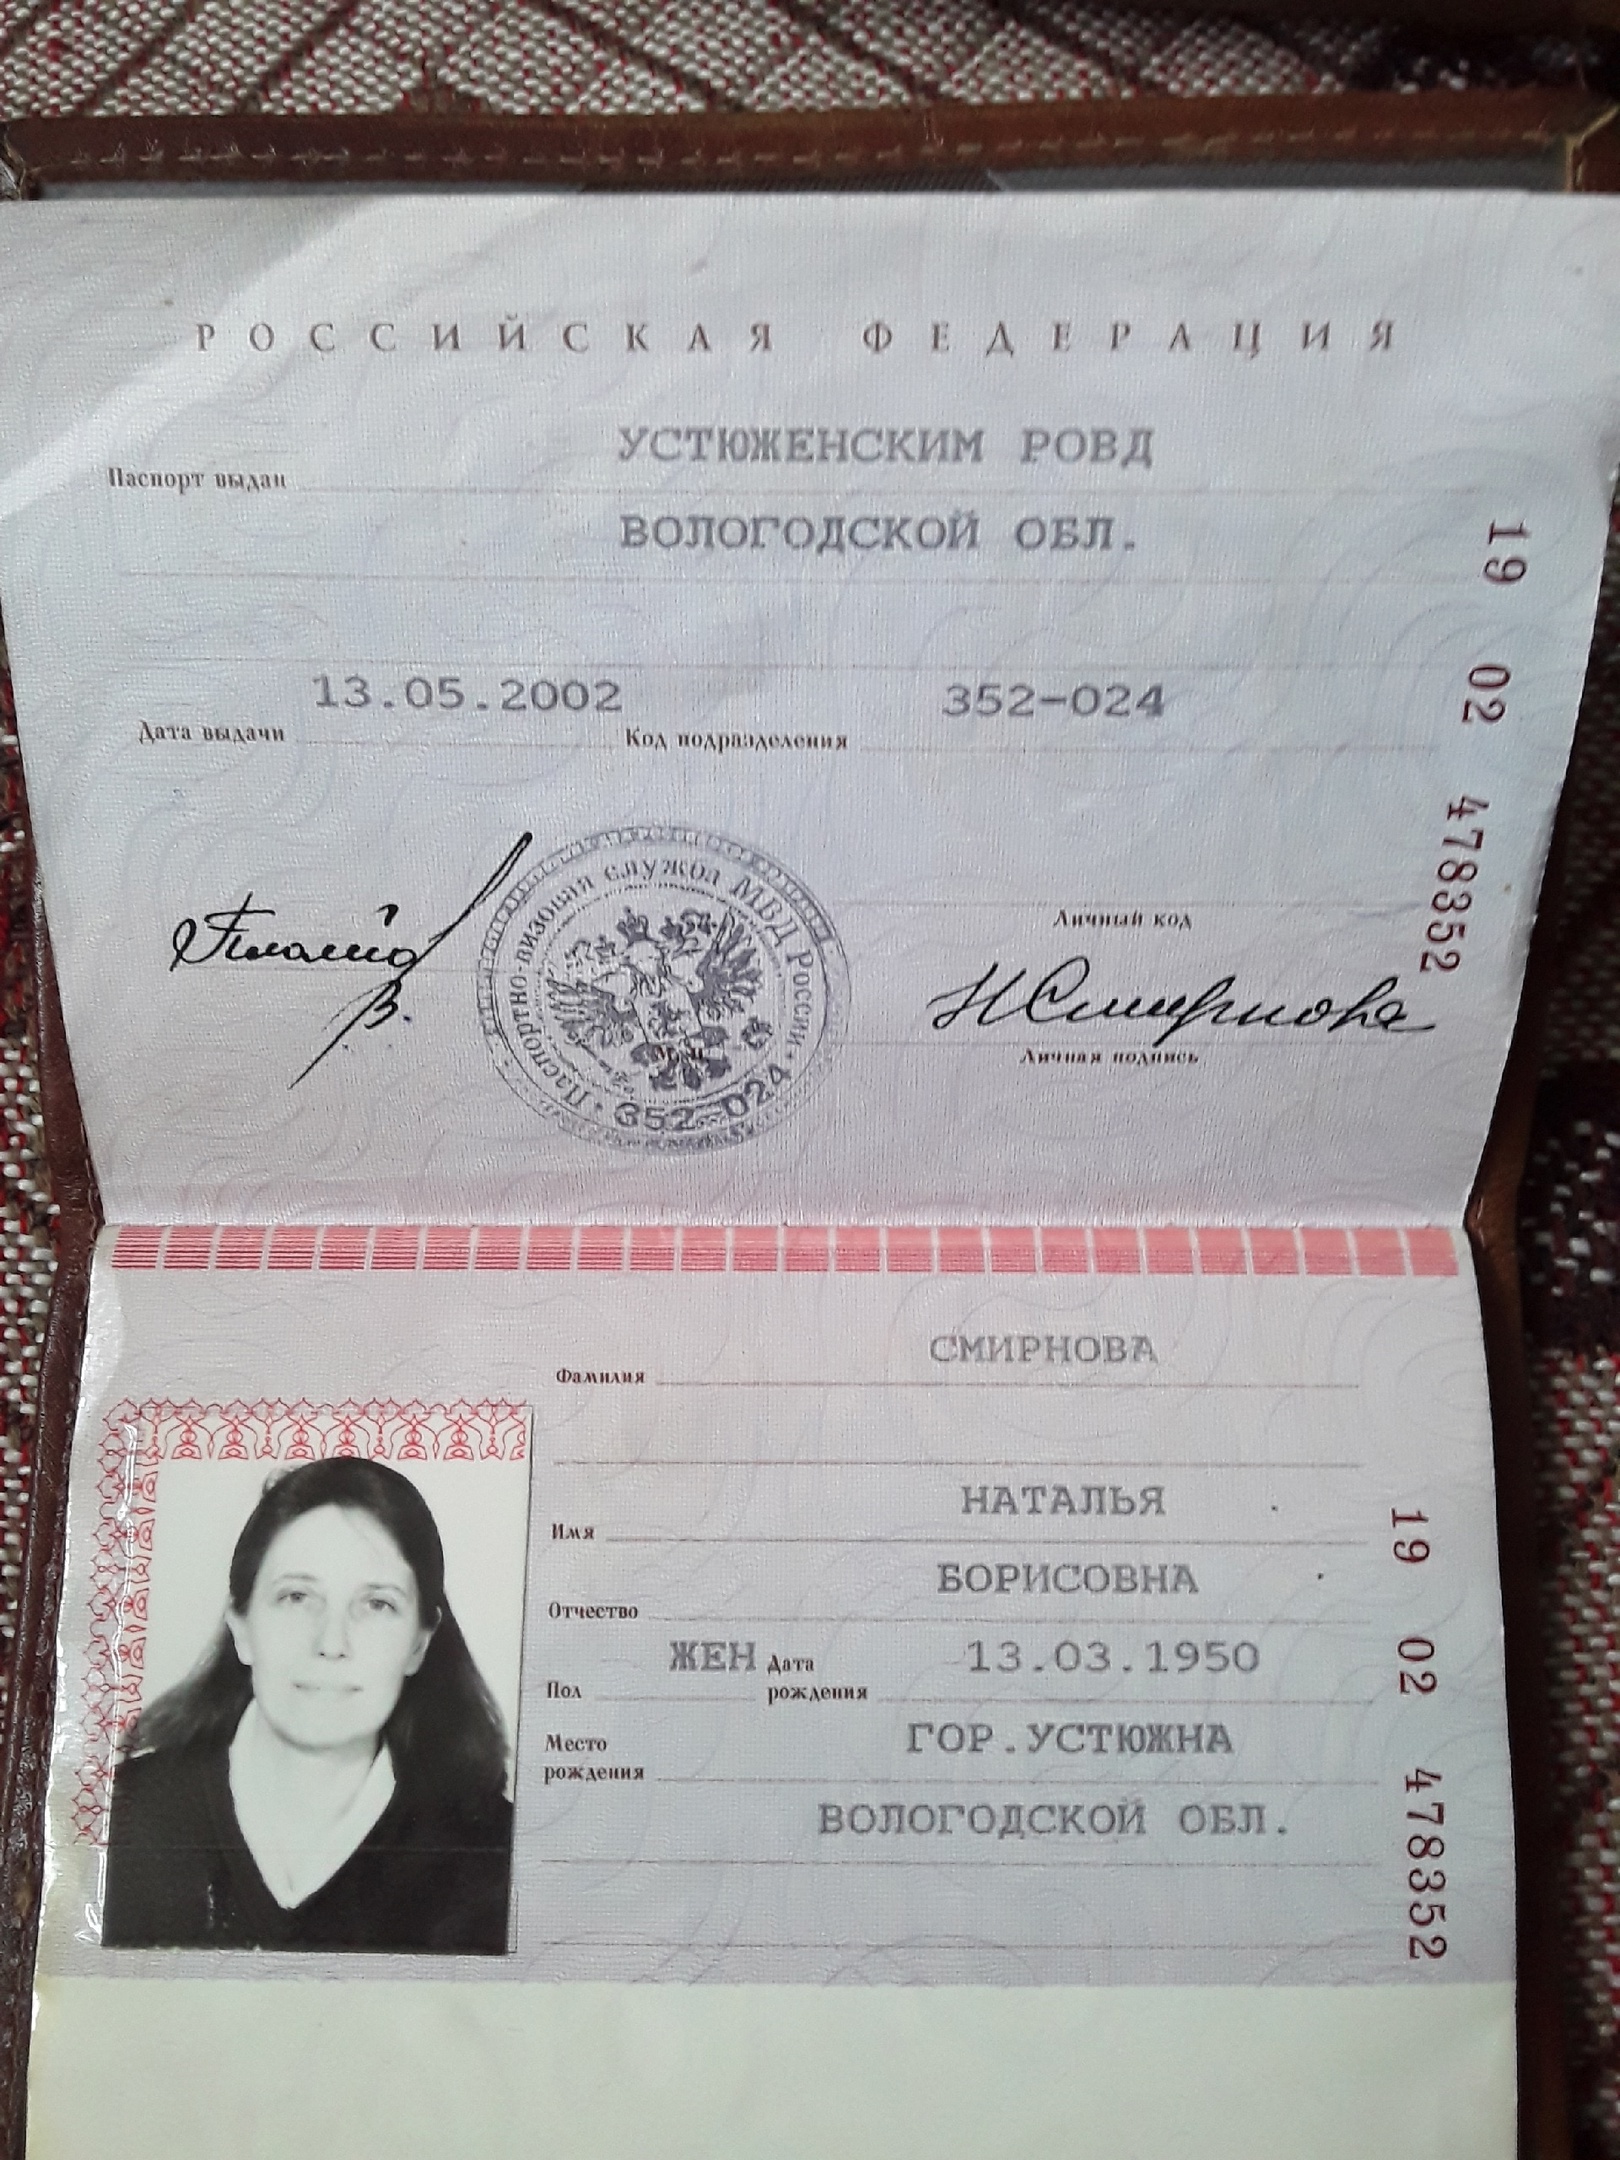 РОССИЙСКАЯ ФЕДЕРАЦИЯ
УСТЮЖЕНСКИМ РОВД
Паспорт выдан
ВОЛОГОДСКОЙ ОБЛ.
13.05.2002 352-024
Дата выдачи Код подразделения
19 02 478352
Паспортно-визовая служба МВД России
352-024
М.П.
Личный код
Н Смирнова
Личная подпись
СМИРНОВА
Фамилия
НАТАЛЬЯ
Имя
БОРИСОВНА
Отчество
ЖЕН Дата 13.03.1950
Пол рождения
Место ГОР.УСТЮЖНА
рождения
ВОЛОГОДСКОЙ ОБЛ.
19 02 478352